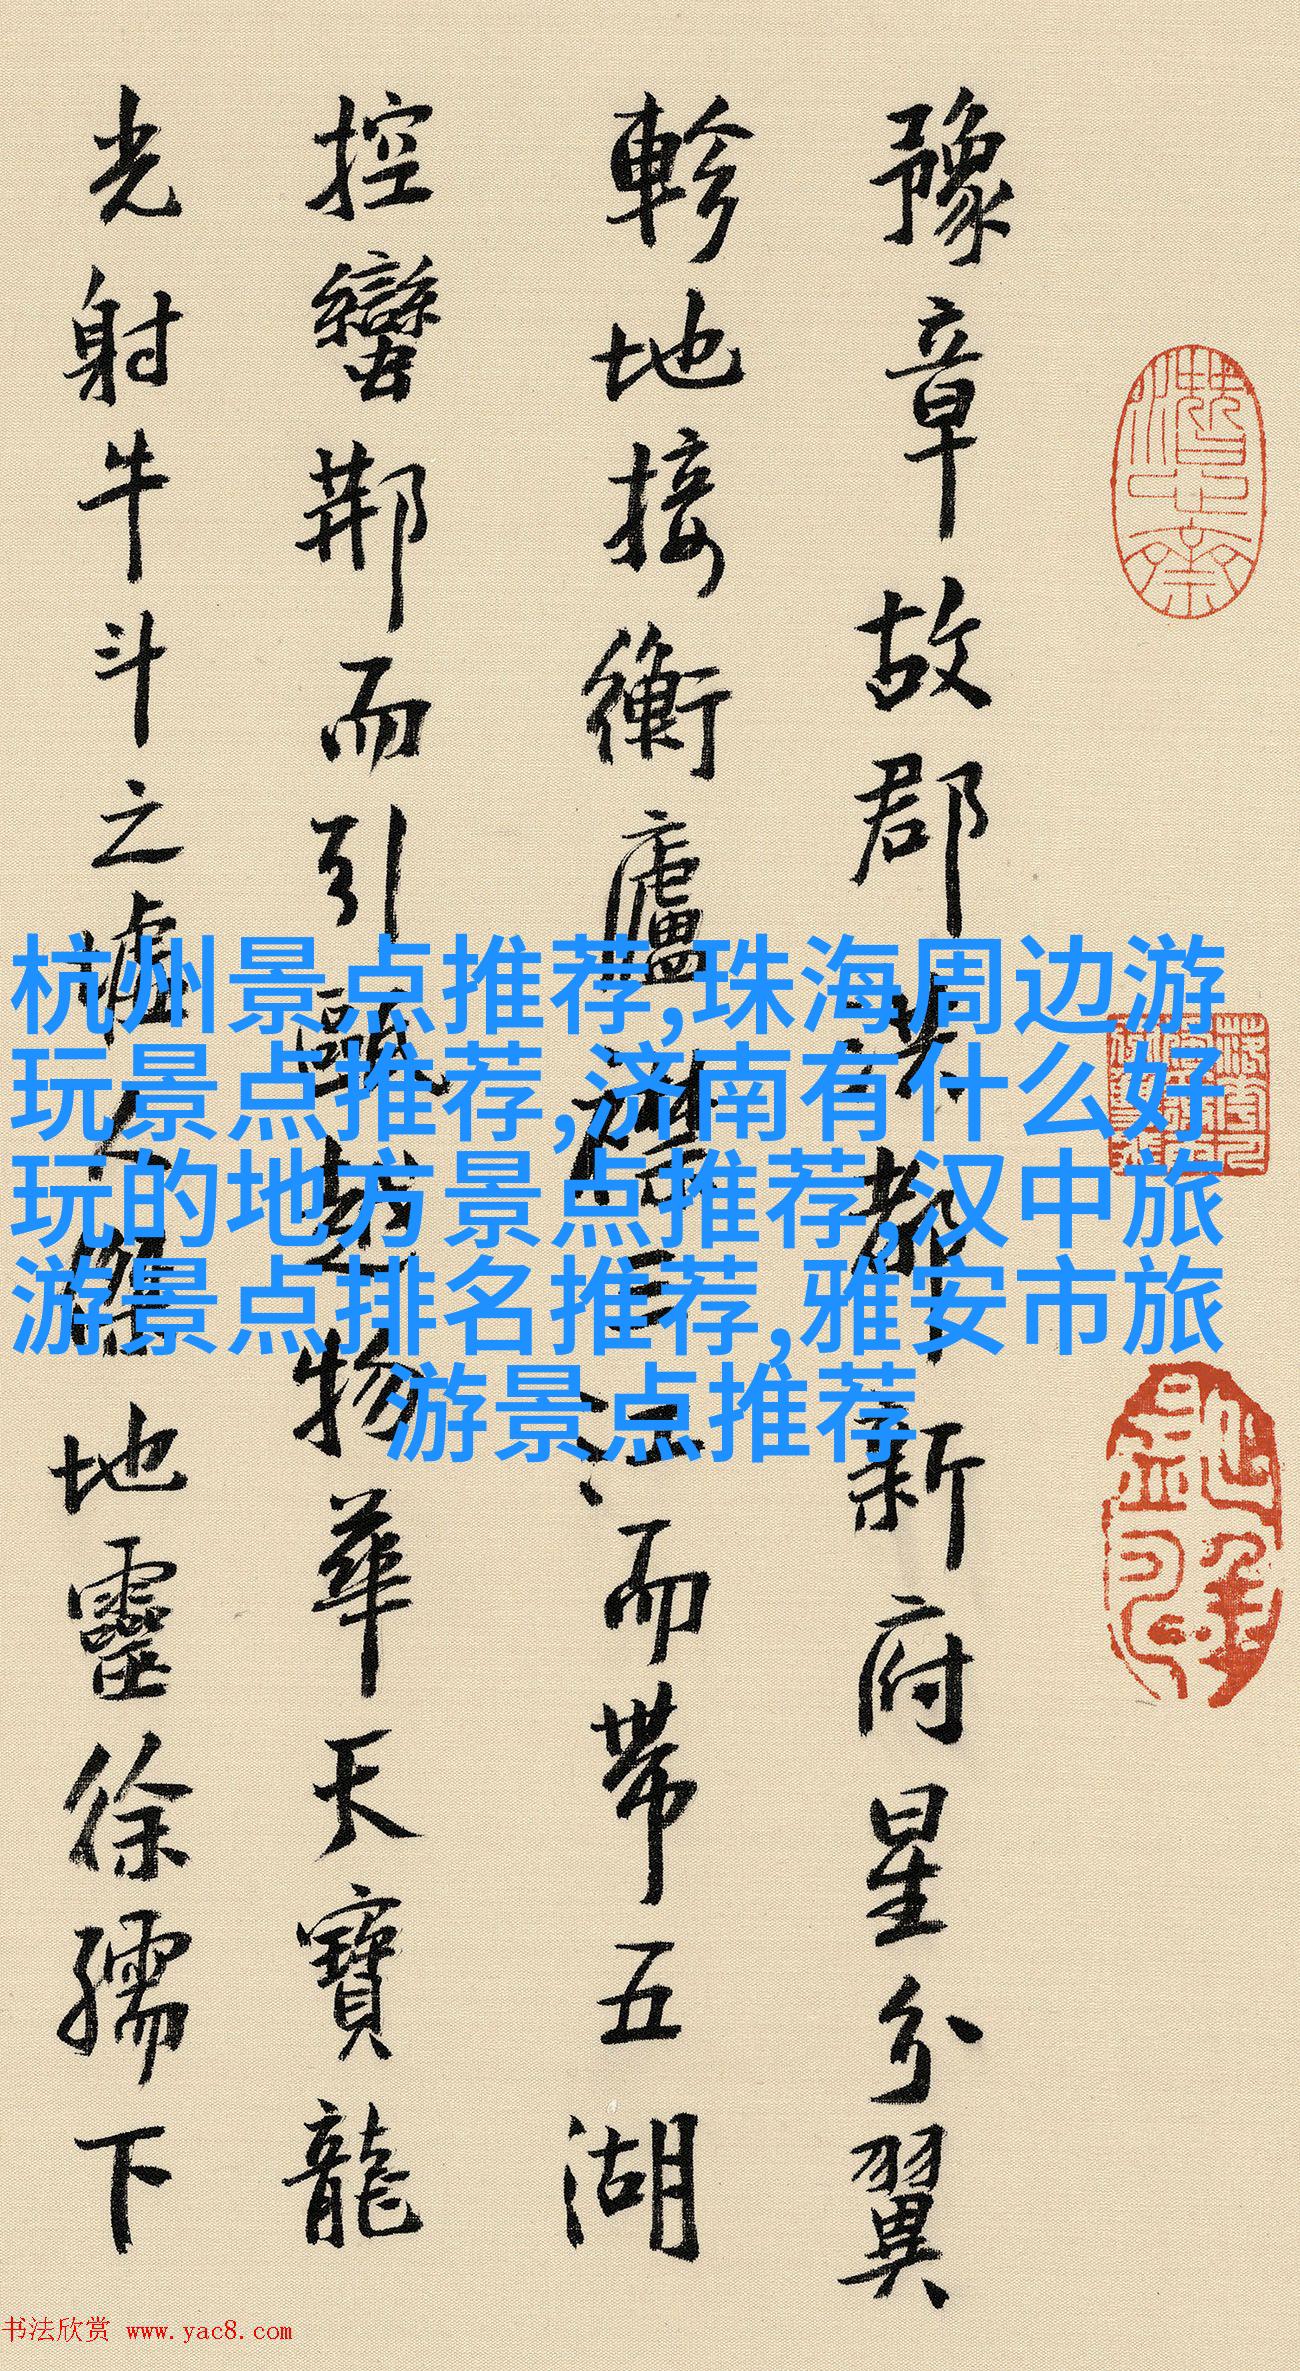 豫章故郡洪都新府星分翼
軫地接衡廬襟三江而帶五湖
控蠻荊而引甌越物華天寶龍
光射牛斗之墟人傑地靈徐孺下
杭州景点推荐,珠海周边游
玩景点推荐,济南有什么好
玩的地方景点推荐,汉中旅
游景点排名推荐,雅安市旅
游景点推荐
书法欣赏 www.yac8.com